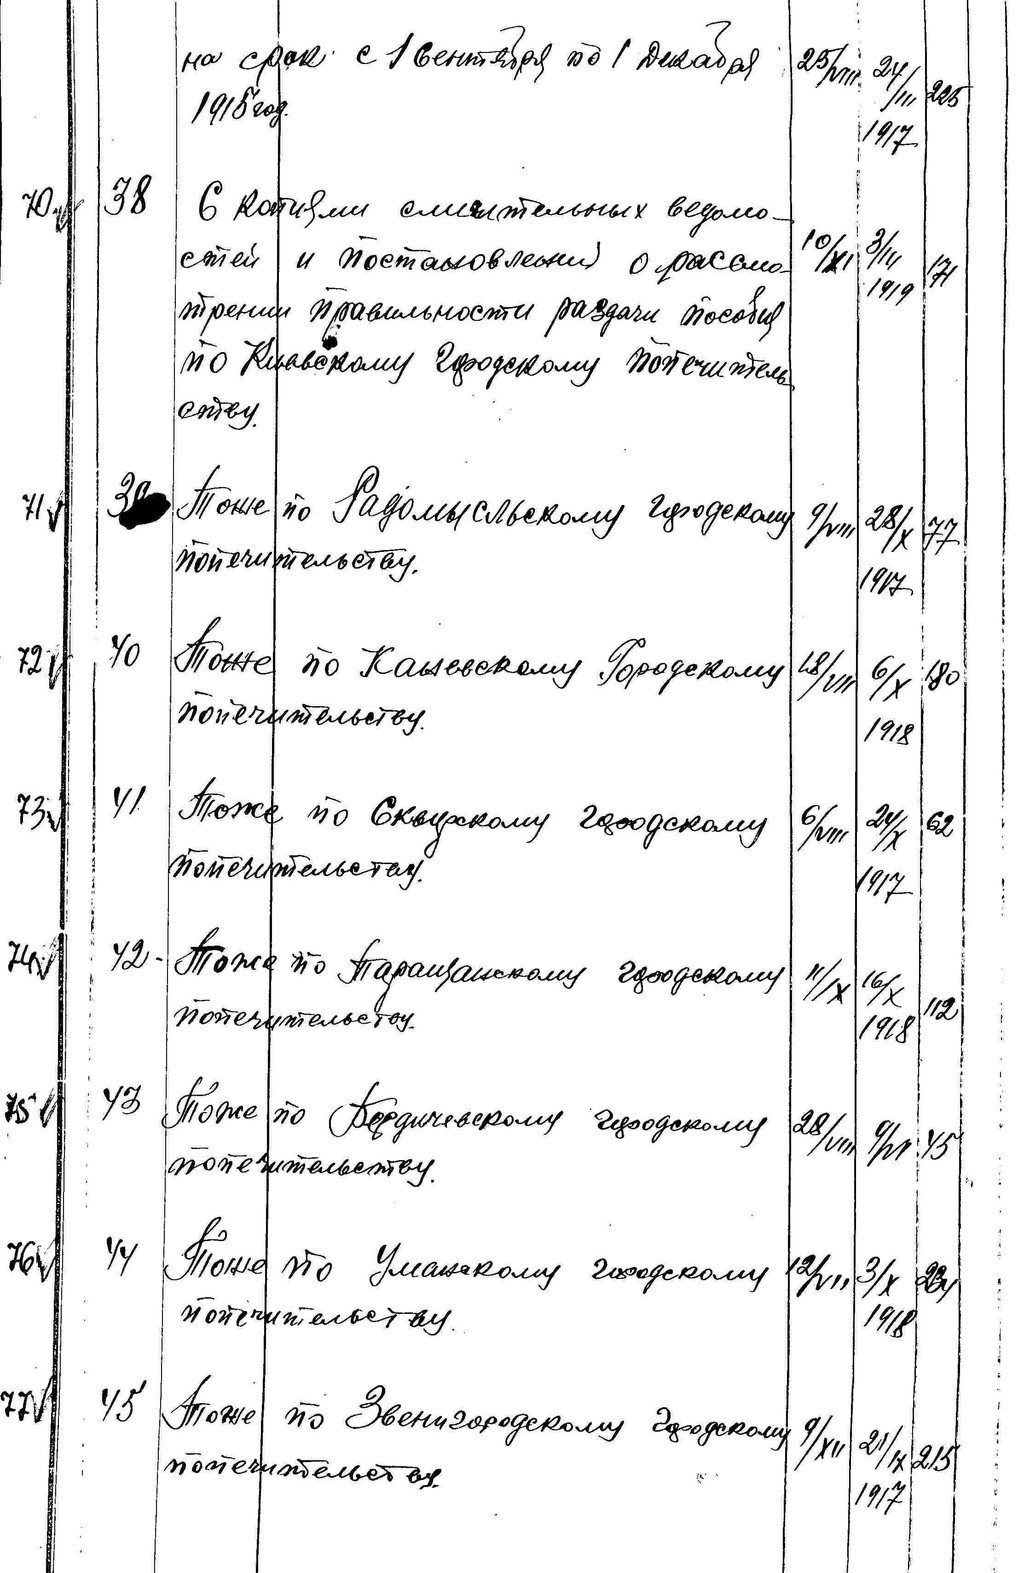 на срок с 1 Сентября по 1 Декабря 25/VIII 24/III 225
1915 год. 1917
70 38 С копиями сличительных ведомо-
стей и постановлений о рассмо- 10/XI 3/III 171
трении правильности раздачи пособия 1919
по Киевскому городскому попечитель
ству.
71 39 Тоже по Радомысльскому городскому 9/VIII 28/X 77
попечительству. 1917
72 40 Тоже по Каневскому Городскому 18/VIII 6/X 180
попечительству. 1918
73 41 Тоже по Сквирскому городскому 6/VIII 24/X 62
попечительству. 1917
74 42- Тоже по Таращанскому городскому 11/IX 16/X 112
попечительству. 1918
75 43 Тоже по Бердичевскому городскому 28/VIII 9/VI 45
попечительству.
76 44 Тоже по Уманскому городскому 12/VII 3/X
попечительству. 1918
77 45 Тоже по Звенигородскому городскому 9/XII 21/IX 215
попечительству. 1917